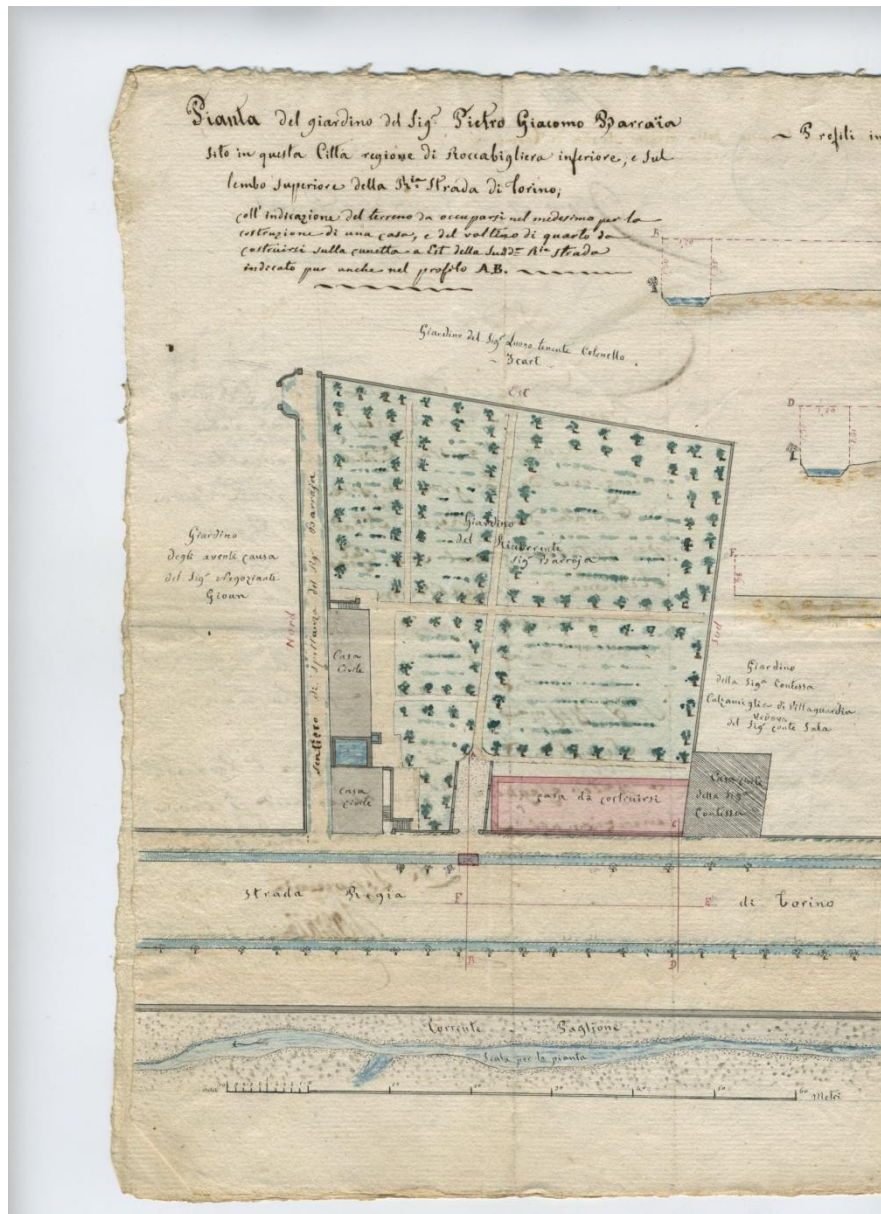 Pianta del giardino del Sig.r Pietro Giacomo Barraïa
sito in questa Città regione di Roccabigliera inferiore, e sul
lembo superiore della R.ia Strada di Torino;
coll' indicazione del terreno da occuparsi nel medesimo per la
costruzione di una casa, e del voltino di quarto da
costruirsi sulla cunetta a Est della Sudd.a R.ia strada
indicato pur anche nel profilo A.B.
~ Profili in
B
Giardino del Sig.r Luogo tenente Colonello
Est
D
Giardino
degli aventi causa
del Sig.r Negoziante
Gioan
Nord
sentiero di spettanza del Sig. Barraja
Giardino
del Ricorrente
Sig.r Barraja
F
Sud
Casa
Civile
Giardino
della Sig.a Contessa
di Villaguardia
Vedova
del Sig. conte Sala
A
Casa
civile
casa da costruirsi
C
Casa civile
della Sig.a
Contessa
Strada Regia
F
E
di Torino
B
D
Torrente Paglione
Scala per la pianta
10
20
30
40
50
60 Metri